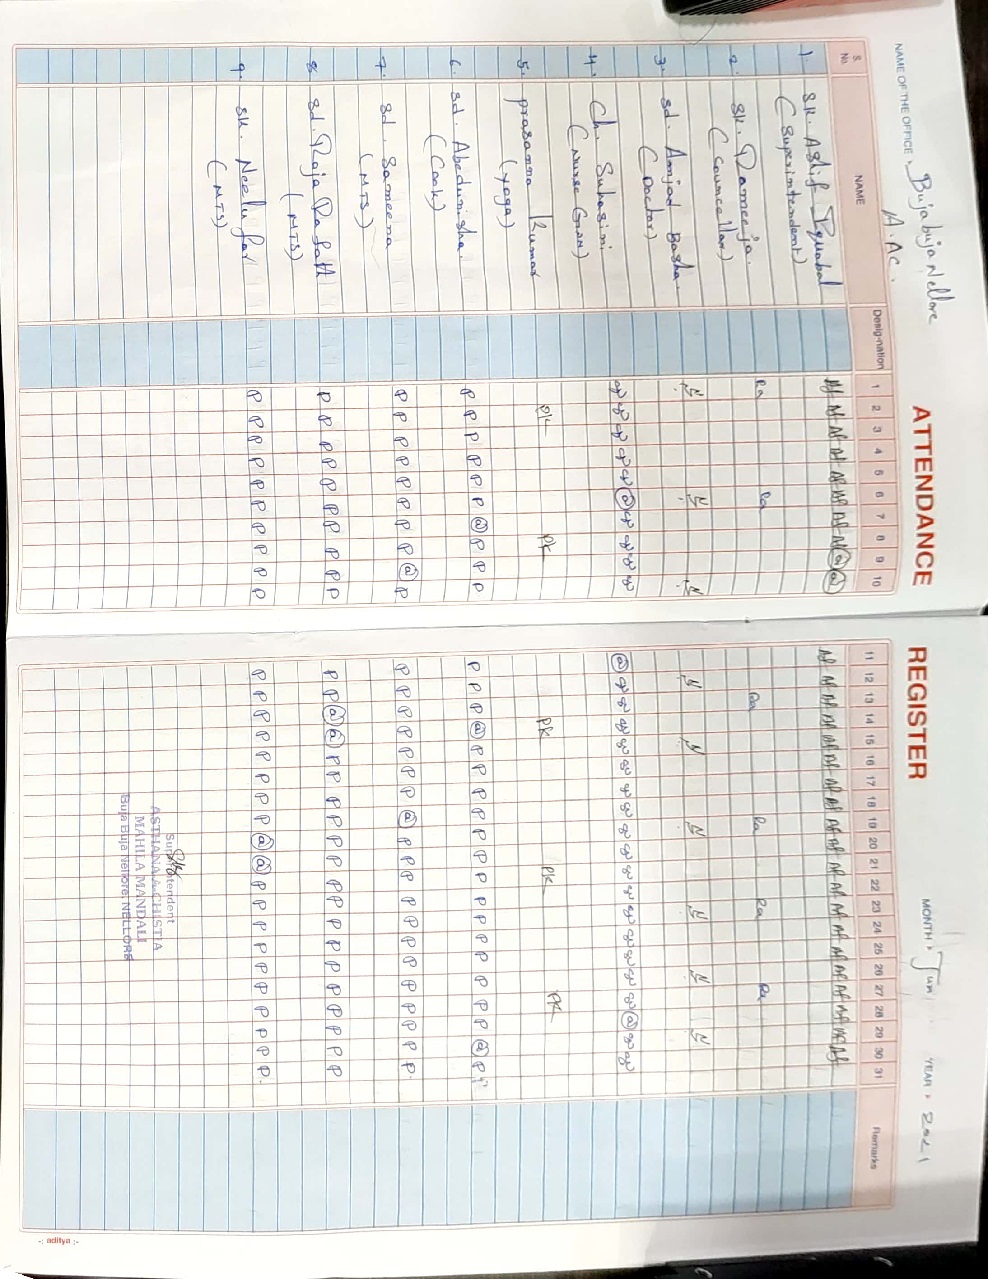 ATTENDANCE REGISTER
NAME OF THE OFFICE Bujabuja Nellore
A.AC.
MONTH Jun
YEAR 2021
S. No. NAME Designation 1 2 3 4 5 6 7 8 9 10 11 12 13 14 15 16 17 18 19 20 21 22 23 24 25 26 27 28 29 30 31 Remarks
1. SK. Ashif Iquabal
(Superintendent)
2. SK. Rameeja.
(Councellor)
Ra Ra Ra Ra Ra Ra
3. Sd. Amjad Basha.
(Doctor)
4. Ch. Suhasini
(Nurse Gnm)
5. prasanna kumar
(Yoga)
PK PK PK PK PK
6. Sd. Abedunisha.
(Cook)
P P P P P P @ P P P P P @ P P P P P P P P P P P P P P @ P
7. Sd. Sameena
(MTS)
P P P P P P P P @ P P P P P P P P @ P P P P P P P P P P P P
8. Sd. Roja Pa
(MTS)
P P P P P P P P P P P P @ @ P P P P P P P P P P P P P P P P
9. SK. Neelufar
(MTS)
P P P P P P P P P P P P P P P P P P @ @ P P P P P P P P P P
Superintendent
ASTHANA-A-CHISTIA
MAHILA MANDALI
Buja Buja Nellore, NELLORE
-: aditya :-